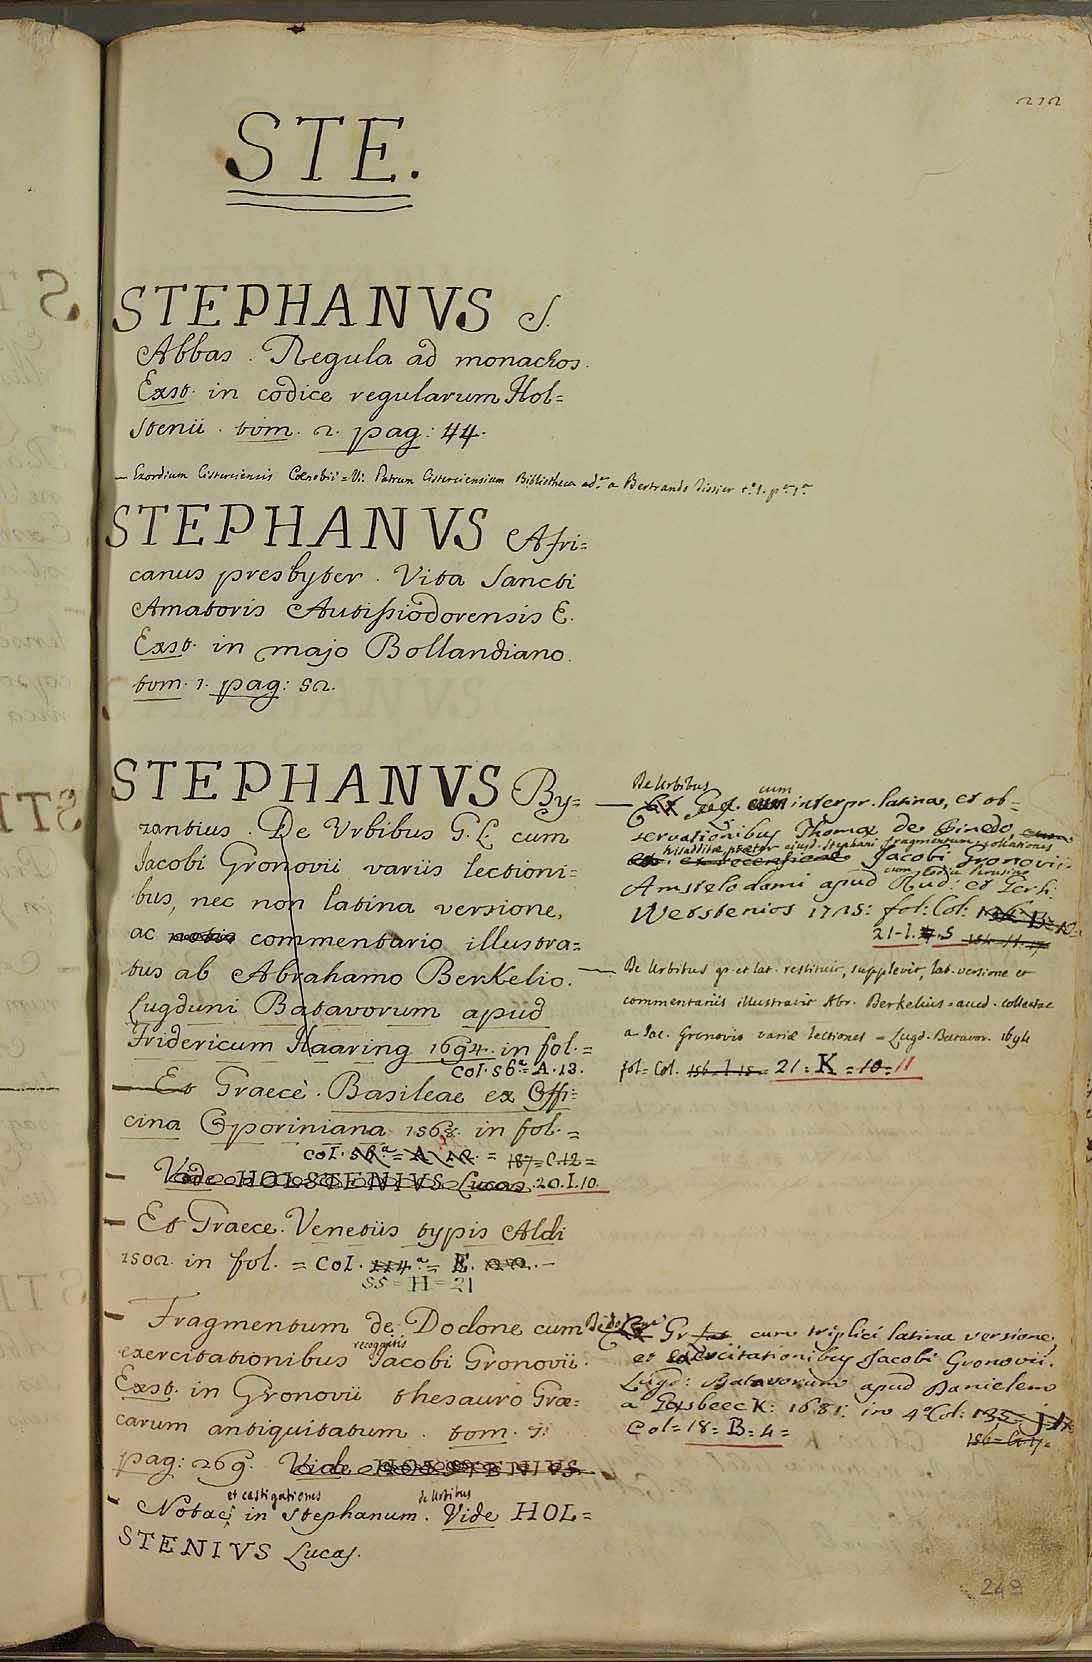 212
STE.
STEPHANVS S.
Abbas. Regula ad monachos.
Exst. in codice regularum Hol=
stenii. tom. 2. pag: 44.
— Exordium Cisterciensis Coenobii = Vi: Patrum Cisterciensium Bibliotheca ad.a a Bertrando Tissier t.o 1. p.a 1.a
STEPHANVS Afri=
canus presbyter. Vita Sancti
Amatoris Autissiodorensis E.
Exst. in majo Bollandiano.
tom. 1. pag: 52.
STEPHANVS By=
zantius. De Vrbibus G. L. cum
Jacobi Gronovii variis lectioni=
bus, nec non latina versione,
ac notis commentario illustra=
tus ab Abrahamo Berkelio.
Lugduni Batavorum apud
Fridericum Haaring 1694. in fol. =
col. 56.a = A. 13.
— Et Graecè. Basileae ex Offi=
cina Oporiniana 1568. in fol. =
col. 58.a = A 12. = 187 = C.12 =
— Vide HOLSTENIVS Lucas. 20. I. 10
— Et Graece. Venetiis typis Aldi
1502. in fol. = col. 114.a = E. 22. —
55 = H = 21
— Fragmentum de Dodone cum
exercitationibus recognitis Jacobi Gronovii.
Exst. in Gronovii thesauro Grae=
carum antiquitatum. tom. 7.
pag: 269. Vide HOLSTENIVS
et castigationes de Urbibus
— Notae; in Stephanum. Vide HOL=
STENIVS Lucas.
De Urbibus cum
— Gr. cum interpr. latina, et ob=
servationibus Thomae de Pinedo, cum
his additae praeter ejusd. Stephani fragmentum collationes
ex recensione Jacobi Gronovii.
cum codice Perusino
Amstelodami apud Rud: et Gerh:
Wetstenios 1725: fol: Col:
21 - I. 5
— De Urbibus gr. et lat. restituit, supplevit, lat. versione et
commentariis illustravit Abr. Berkelius = aced. collectae
a Jac. Gronovio variae lectiones = Lugd. Batavor. 1694
fol = Col. 156 = I. 15 = 21 = K = 10 = 11
Gr lat cum triplici latina versione,
et exercitationibus Jacobi Gronovii.
Lugd: Batavorum apud Danielem
a Gaesbeeck: 1681: in 4.o Col: 135 =
Col = 18 = B = 4 =
249